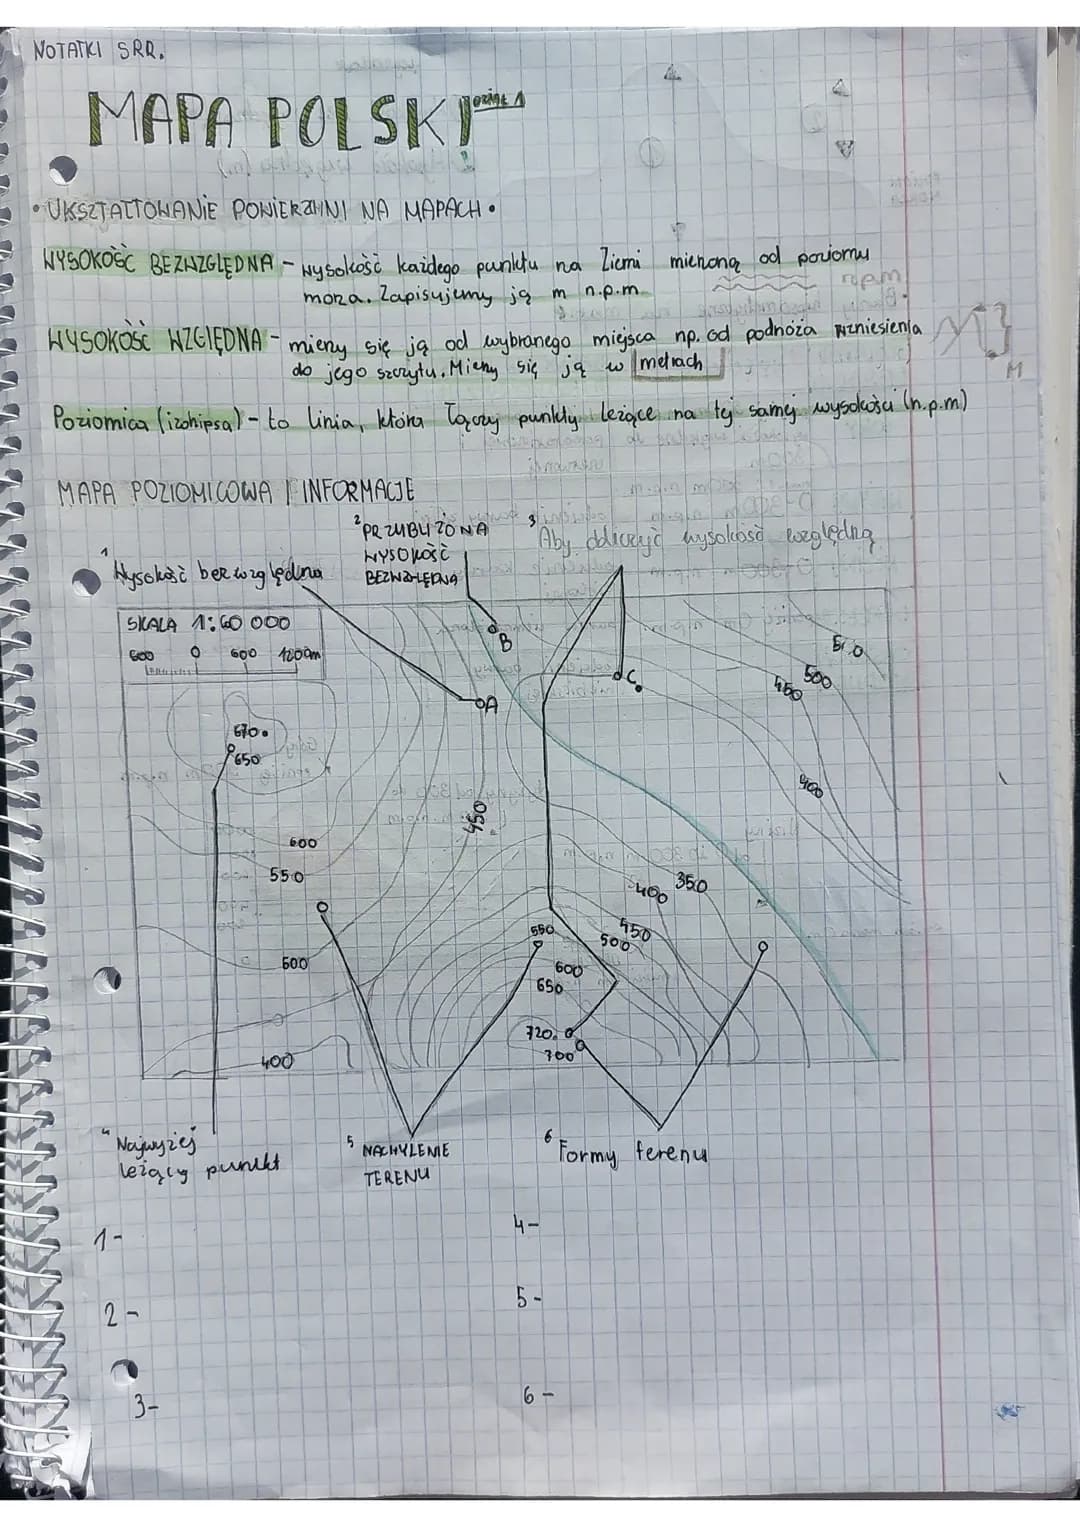 NOTATKI SRR.
MAPA POLSKI DZIAŁ 1
• UKSZTAŁTOWANIE POWIERZHNI NA MAPACH •
WYSOKOŚĆ BEZWZGLĘDNA – wysokość każdego punktu na Ziemi mierzona od poziomu
morza. Zapisujemy ją m n.p.m
WYSOKOŚĆ WZGLĘDNA – mierzy się ją od wybranego miejsca np. od podnóża wzniesienia
do jego szczytu. Mierzy się ją w metrach
M
Poziomica (izohipsa) – to linia, która łączy punkty leżące na tej samej wysokości (n.p.m)
MAPA POZIOMICOWA I INFORMACJE
1 Wysokość bezwzględna
2 PRZYBLIŻONA
WYSOKOŚĆ
BEZWZLĘDNA
3 Aby obliczyć wysokość względną
SKALA 1:60 000
600 0 600 1200m
B
C
A
500
450
670.
650
400
450
600
550
400 350
450
500
550
600
650
500
720.
700
400
4 Najwyżej
leżący punkt
5 NACHYLENIE
TERENU
6 Formy terenu
1-
2-
3-
4-
5-
6-